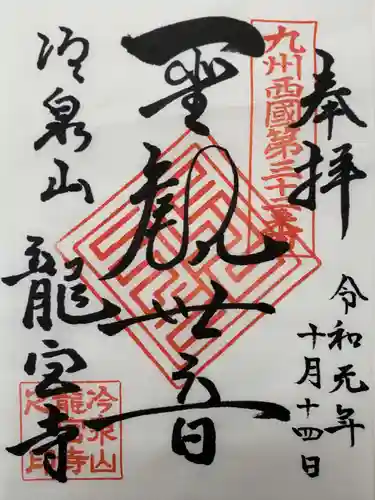 奉拝
令和元年
十月十四日
九州西國第三十二番
聖観世音
冷泉山
龍宮寺
冷泉山
龍宮寺